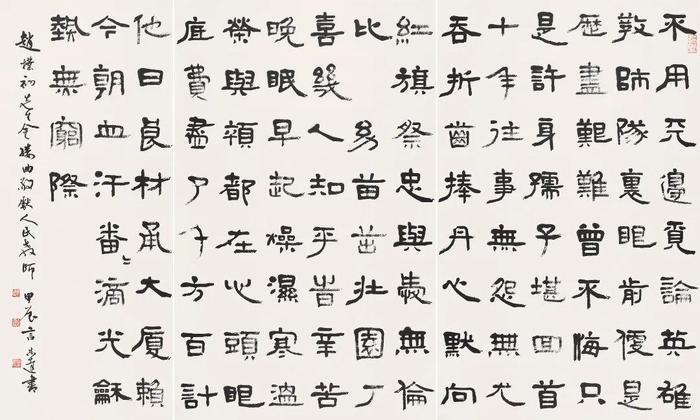 不用天邊覓論英雄
教師隊裏眼前便是
歷盡艱難曾不悔只
是許身孺子堪回首
十年往事無怨無尤
吞折齒捧丹心默向
紅旗祭忠與愛無倫
比 幼苗茁壯園丁
喜幾人知平旹辛苦
晚眠早起燥濕寒温
榮與顇都在心頭眼
底費盡了千方百計
他日良材承大廈賴
今朝血汗番々滴光龢
熱無窮際
趙樸初先生金縷曲敬獻人民教師 甲 言恭達書